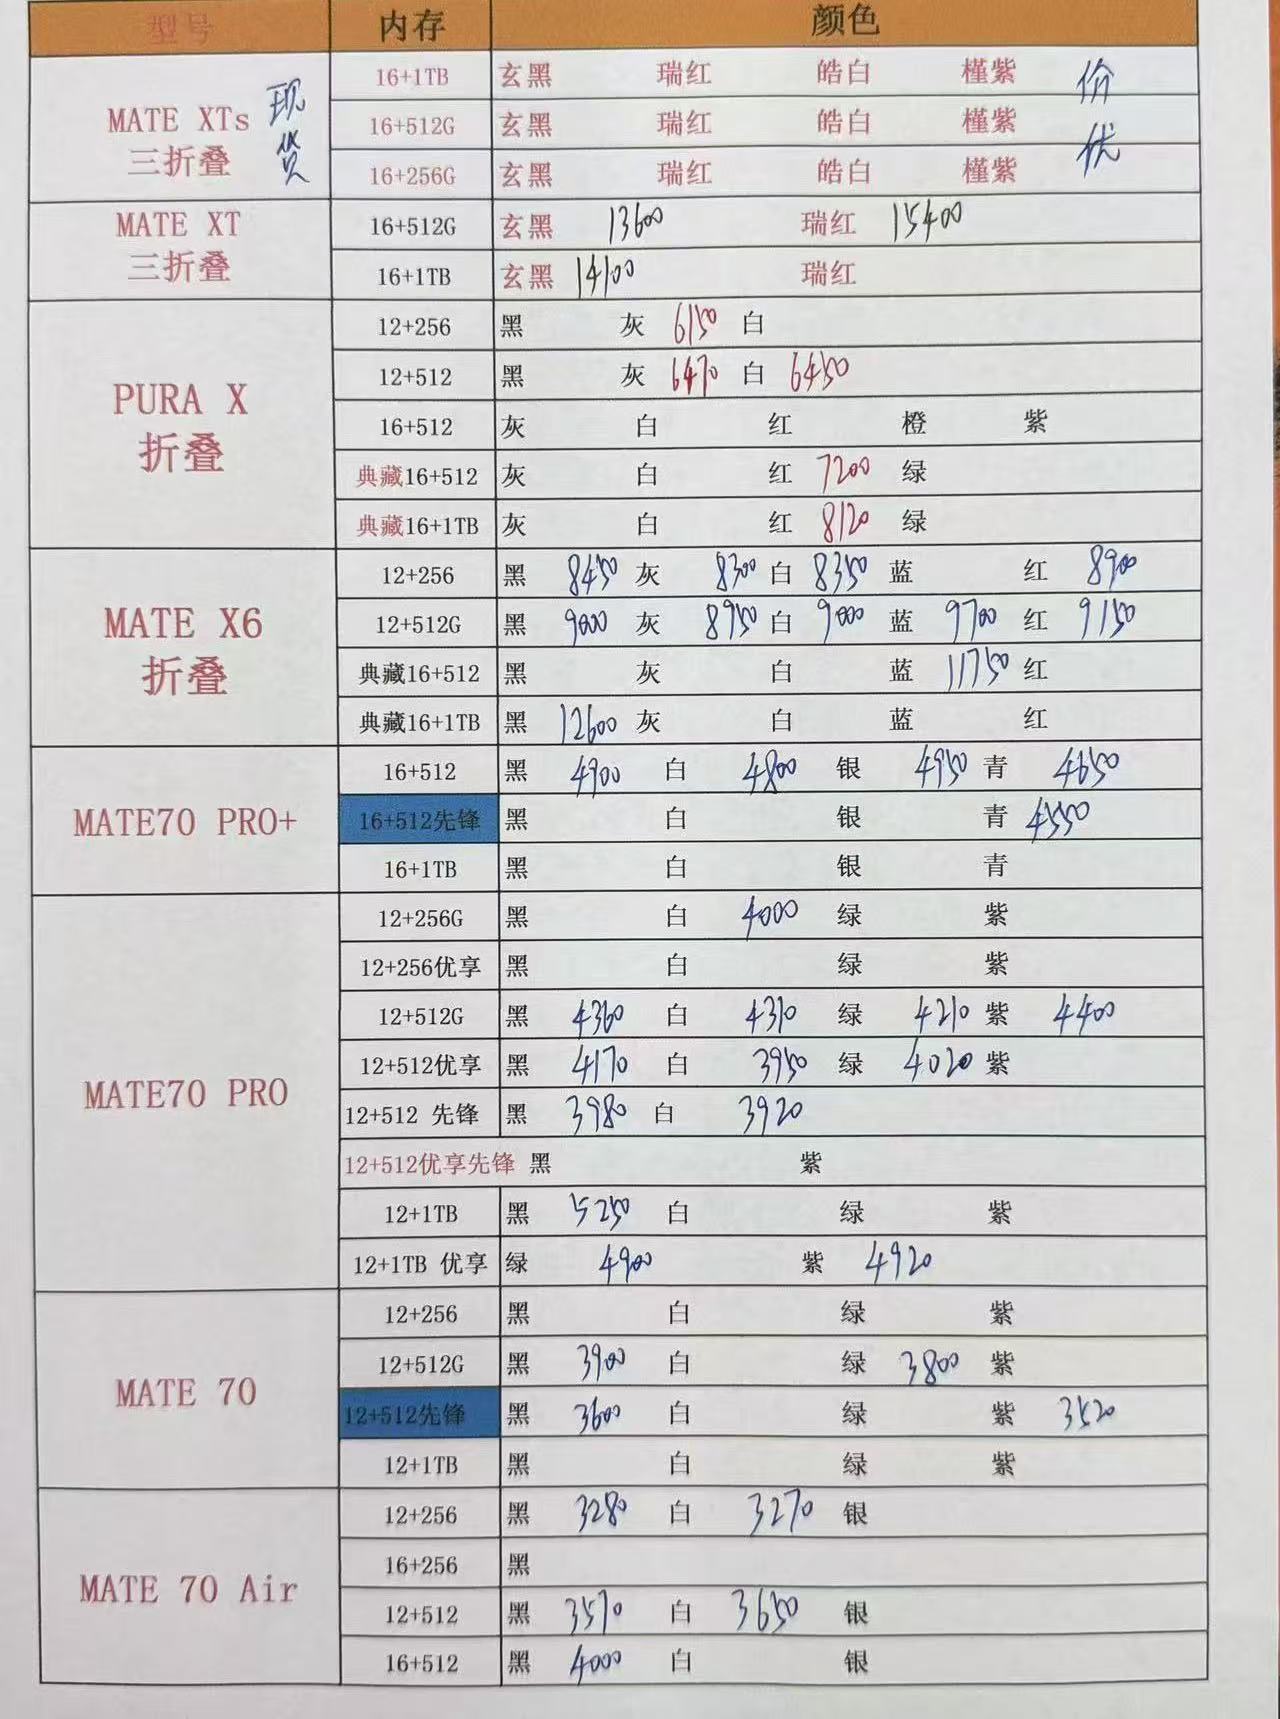 型号 内存 颜色
MATE XTs 三折叠 现货 16+1TB 玄黑 瑞红 皓白 槿紫 价优
16+512G 玄黑 瑞红 皓白 槿紫
16+256G 玄黑 瑞红 皓白 槿紫
MATE XT 三折叠 16+512G 玄黑 13600 瑞红 15400
16+1TB 玄黑 14100 瑞红
PURA X 折叠 12+256 黑 灰 6150 白
12+512 黑 灰 6470 白 6450
16+512 灰 白 红 橙 紫
典藏16+512 灰 白 红 7200 绿
典藏16+1TB 灰 白 红 8120 绿
MATE X6 折叠 12+256 黑 8450 灰 8300 白 8350 蓝 红 8900
12+512G 黑 9000 灰 8950 白 9000 蓝 9700 红 9150
典藏16+512 黑 灰 白 蓝 11750 红
典藏16+1TB 黑 12600 灰 白 蓝 红
MATE70 PRO+ 16+512 黑 4900 白 4800 银 4950 青 4650
16+512先锋 黑 白 银 青 4550
16+1TB 黑 白 银 青
MATE70 PRO 12+256G 黑 白 4000 绿 紫
12+256优享 黑 白 绿 紫
12+512G 黑 4360 白 4310 绿 4210 紫 4400
12+512优享 黑 4170 白 3950 绿 4020 紫
12+512 先锋 黑 3980 白 3920
12+512优享先锋 黑 紫
12+1TB 黑 5250 白 绿 紫
12+1TB 优享 绿 4900 紫 4920
MATE 70 12+256 黑 白 绿 紫
12+512G 黑 3900 白 绿 3800 紫
12+512先锋 黑 3600 白 绿 紫 3520
12+1TB 黑 白 绿 紫
MATE 70 Air 12+256 黑 3280 白 3270 银
16+256 黑
12+512 黑 3570 白 3650 银
16+512 黑 4000 白 银